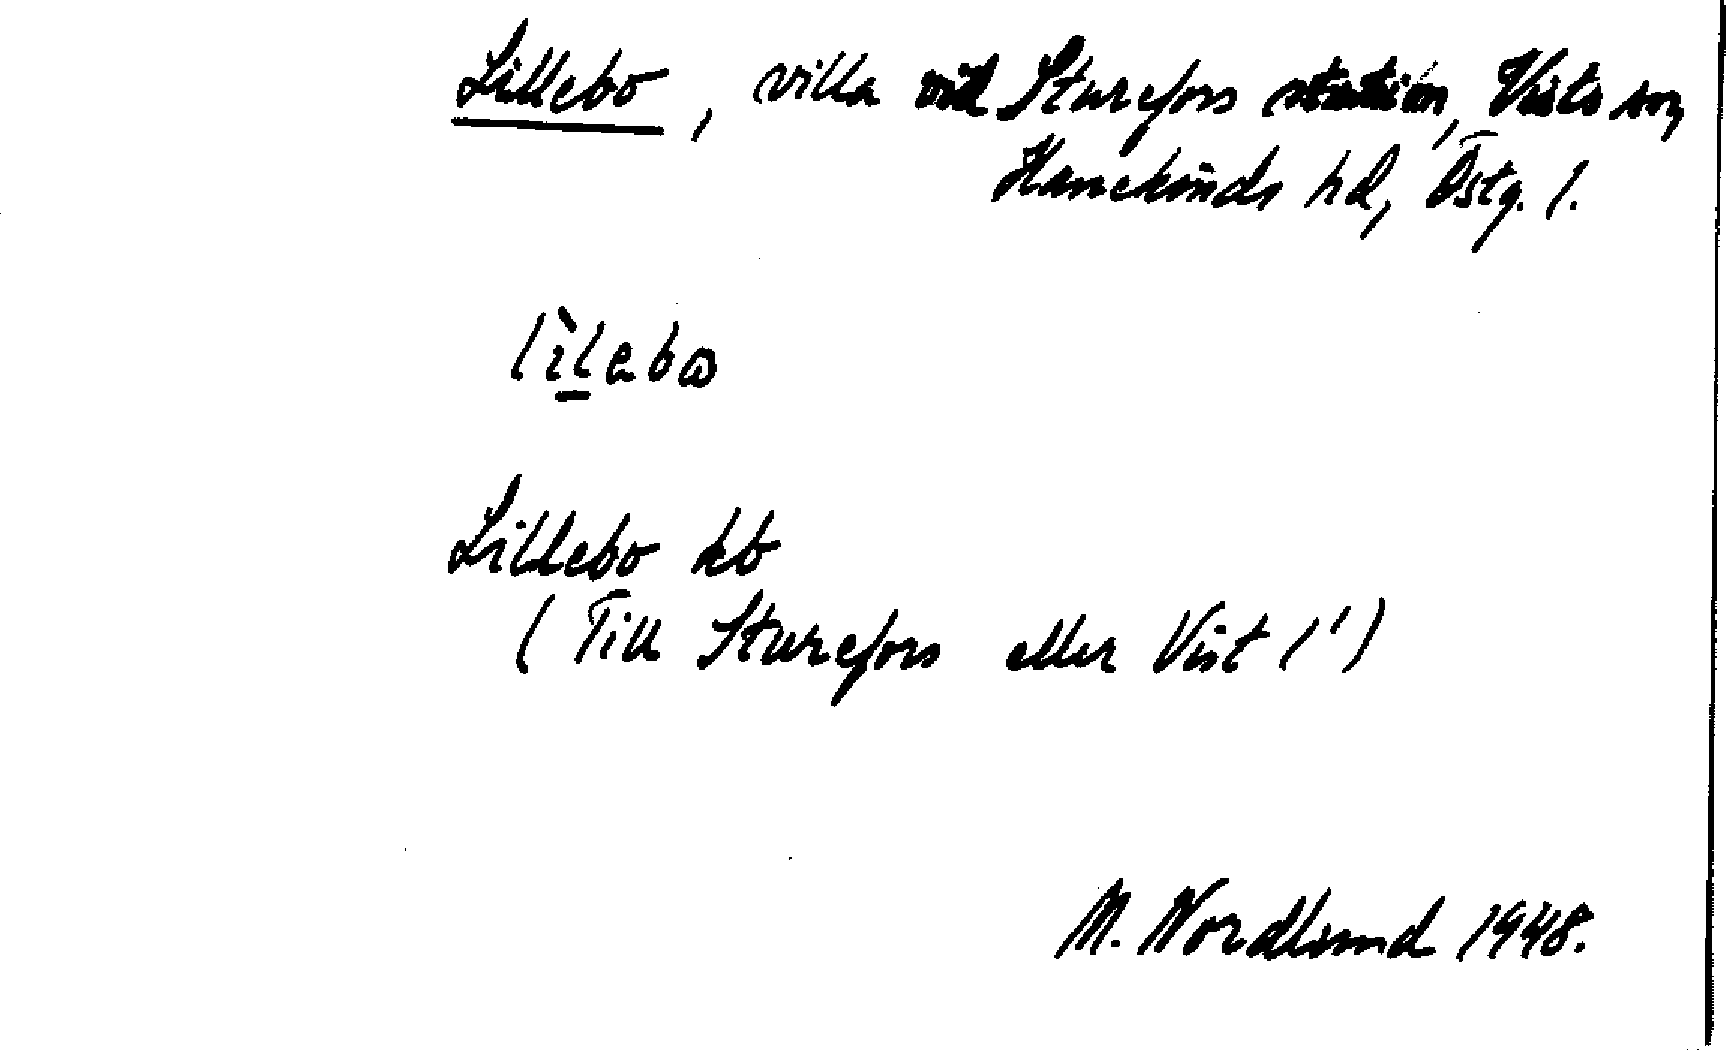 Lillebo, villa vid Sturefors station, Vists sn,
Hanekinds hd, Östg. l.
lìlebo
Lillebo kb
(Till Sturefors eller Vist l')
M. Nordlund 1948.